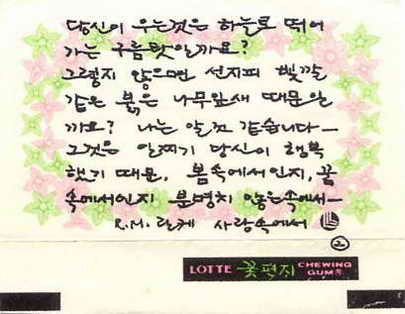 당신이 우는것은 하늘로 떠어
가는 구름탓일까요?
그렇지 않으면 선지피 빛깔
같은 붉은 나무잎새 때문일
까요? 나는 알것 같습니다—
그것은 일찌기 당신이 행복
했기 때문. 봄속에서인지, 꿈
속에서인지 분명치 않은속에서—
R.M. 릴케 사랑속에서
②
LOTTE 꽃편지 CHEWING GUM®